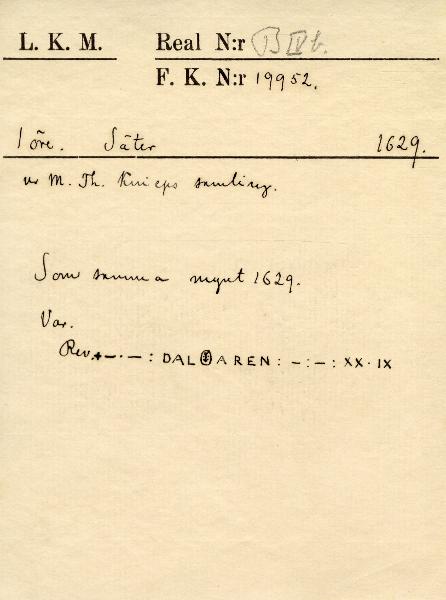 L. K. M. Real N:r B IV b.
F. K. N:r 19952.
1 öre. Säter 1629.
ur M. Th. Knieps samling.
Som samma mynt 1629.
Var.
Rev. +–·–: DAL AREN : –:–: XX·IX